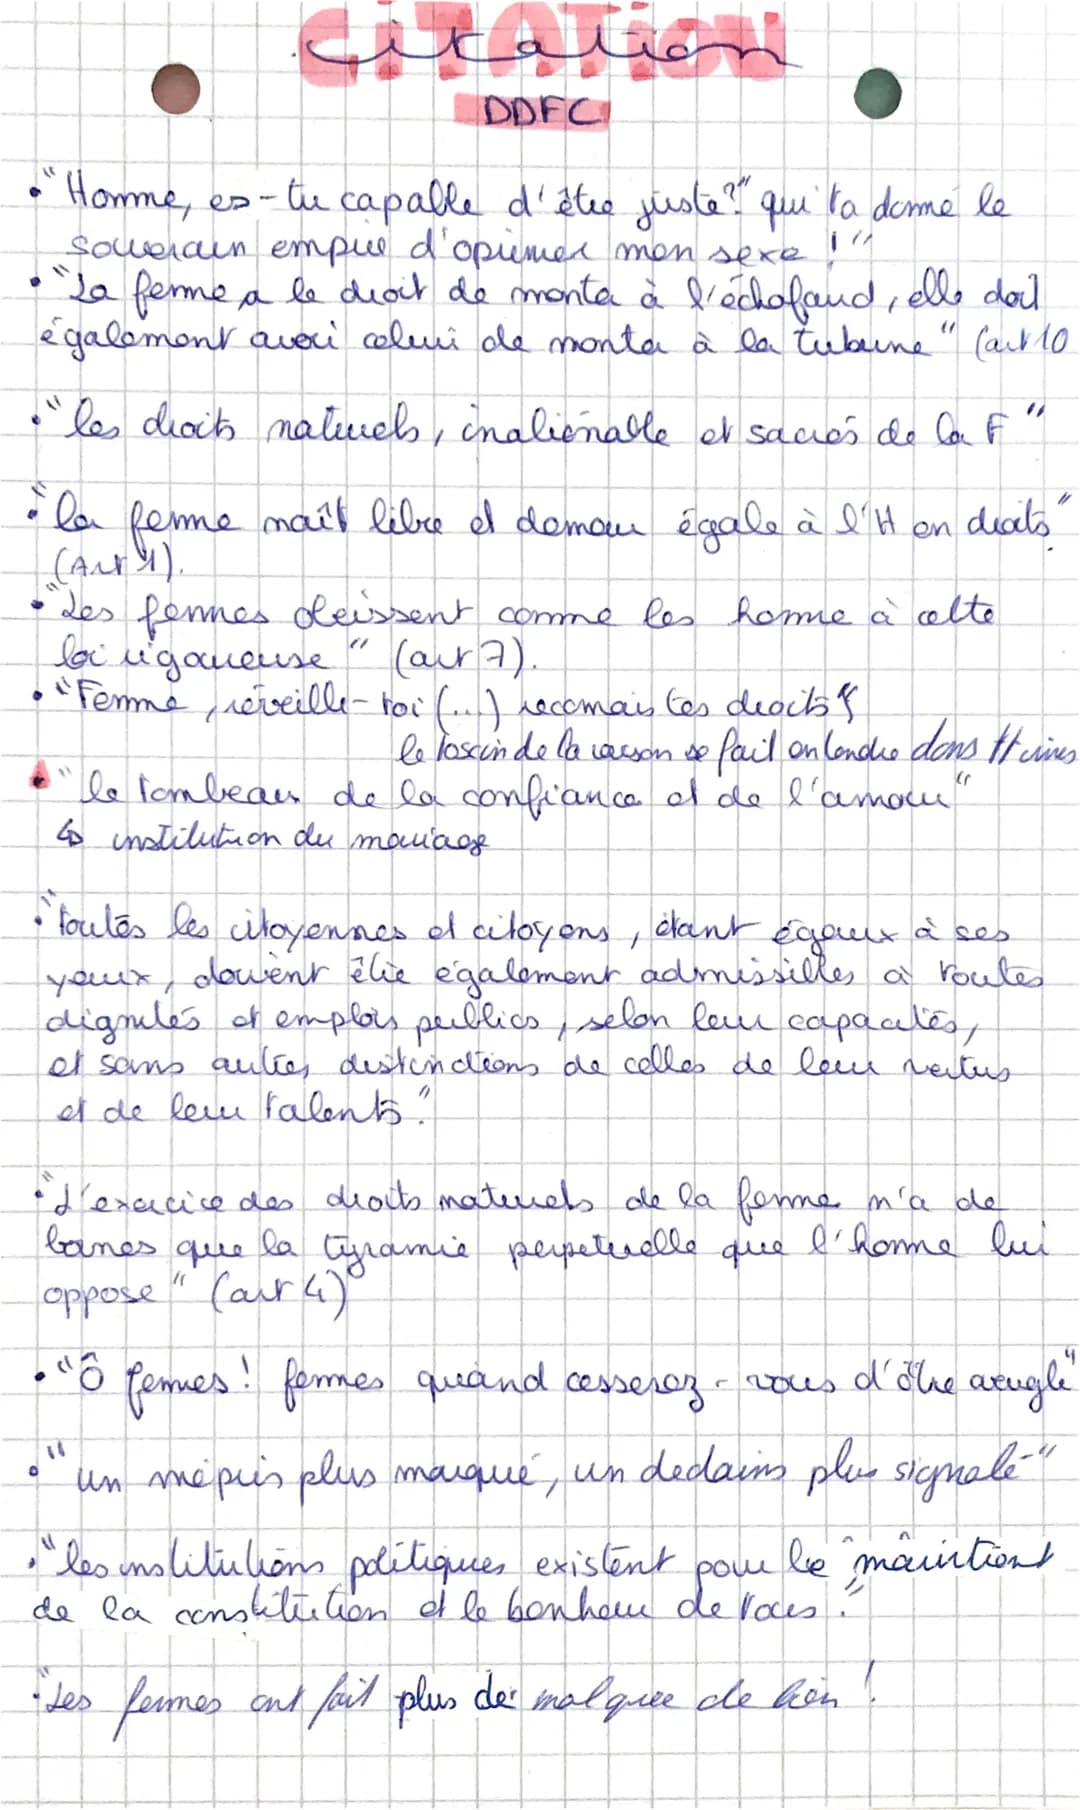 CITATION
Citation
DDFC
• "Homme, es-tu capable d'être juste?" qui t'a donné le
souverain empire d'opprimer mon sexe !"
• "La femme a le droit de monter à l'échafaud, elle doit
également avoir celui de monter à la tribune" (art 10
• "les droits naturels, inaliénable et sacrés de la F"
• "la femme naît libre et demeur égale à l'H en droits"
(Art 1).
• "Les femmes obeissent comme les homme à cette
loi rigoureuse" (art 7).
• "Femme, réveille-toi (...) reconnais tes droits
le toscin de la raison se fait entendre dans
• "le tombeau de la confiance et de l'amour"
↳ institution du mariage
• "Toutes les citoyennes et citoyens, étant égaux à ses
yeux, doivent être également admissibles à toutes
dignités et emplois publics, selon leur capacités,
et sans autres distinctions de celles de leur vertus
et de leur talents."
• "L'exercice des droits naturels de la femme n'a de
bornes que la tyrannie perpetuelle que l'homme lui
oppose" (art 4)
• "Ô femmes! femmes quand cesserez-vous d'être aveugle"
• "un mépris plus marqué, un dedains plus signalé"
• "les institutions politiques existent pour le maintient
de la constitution et le bonheur de tous."
• "Les femmes ont fait plus de mal que de bien!